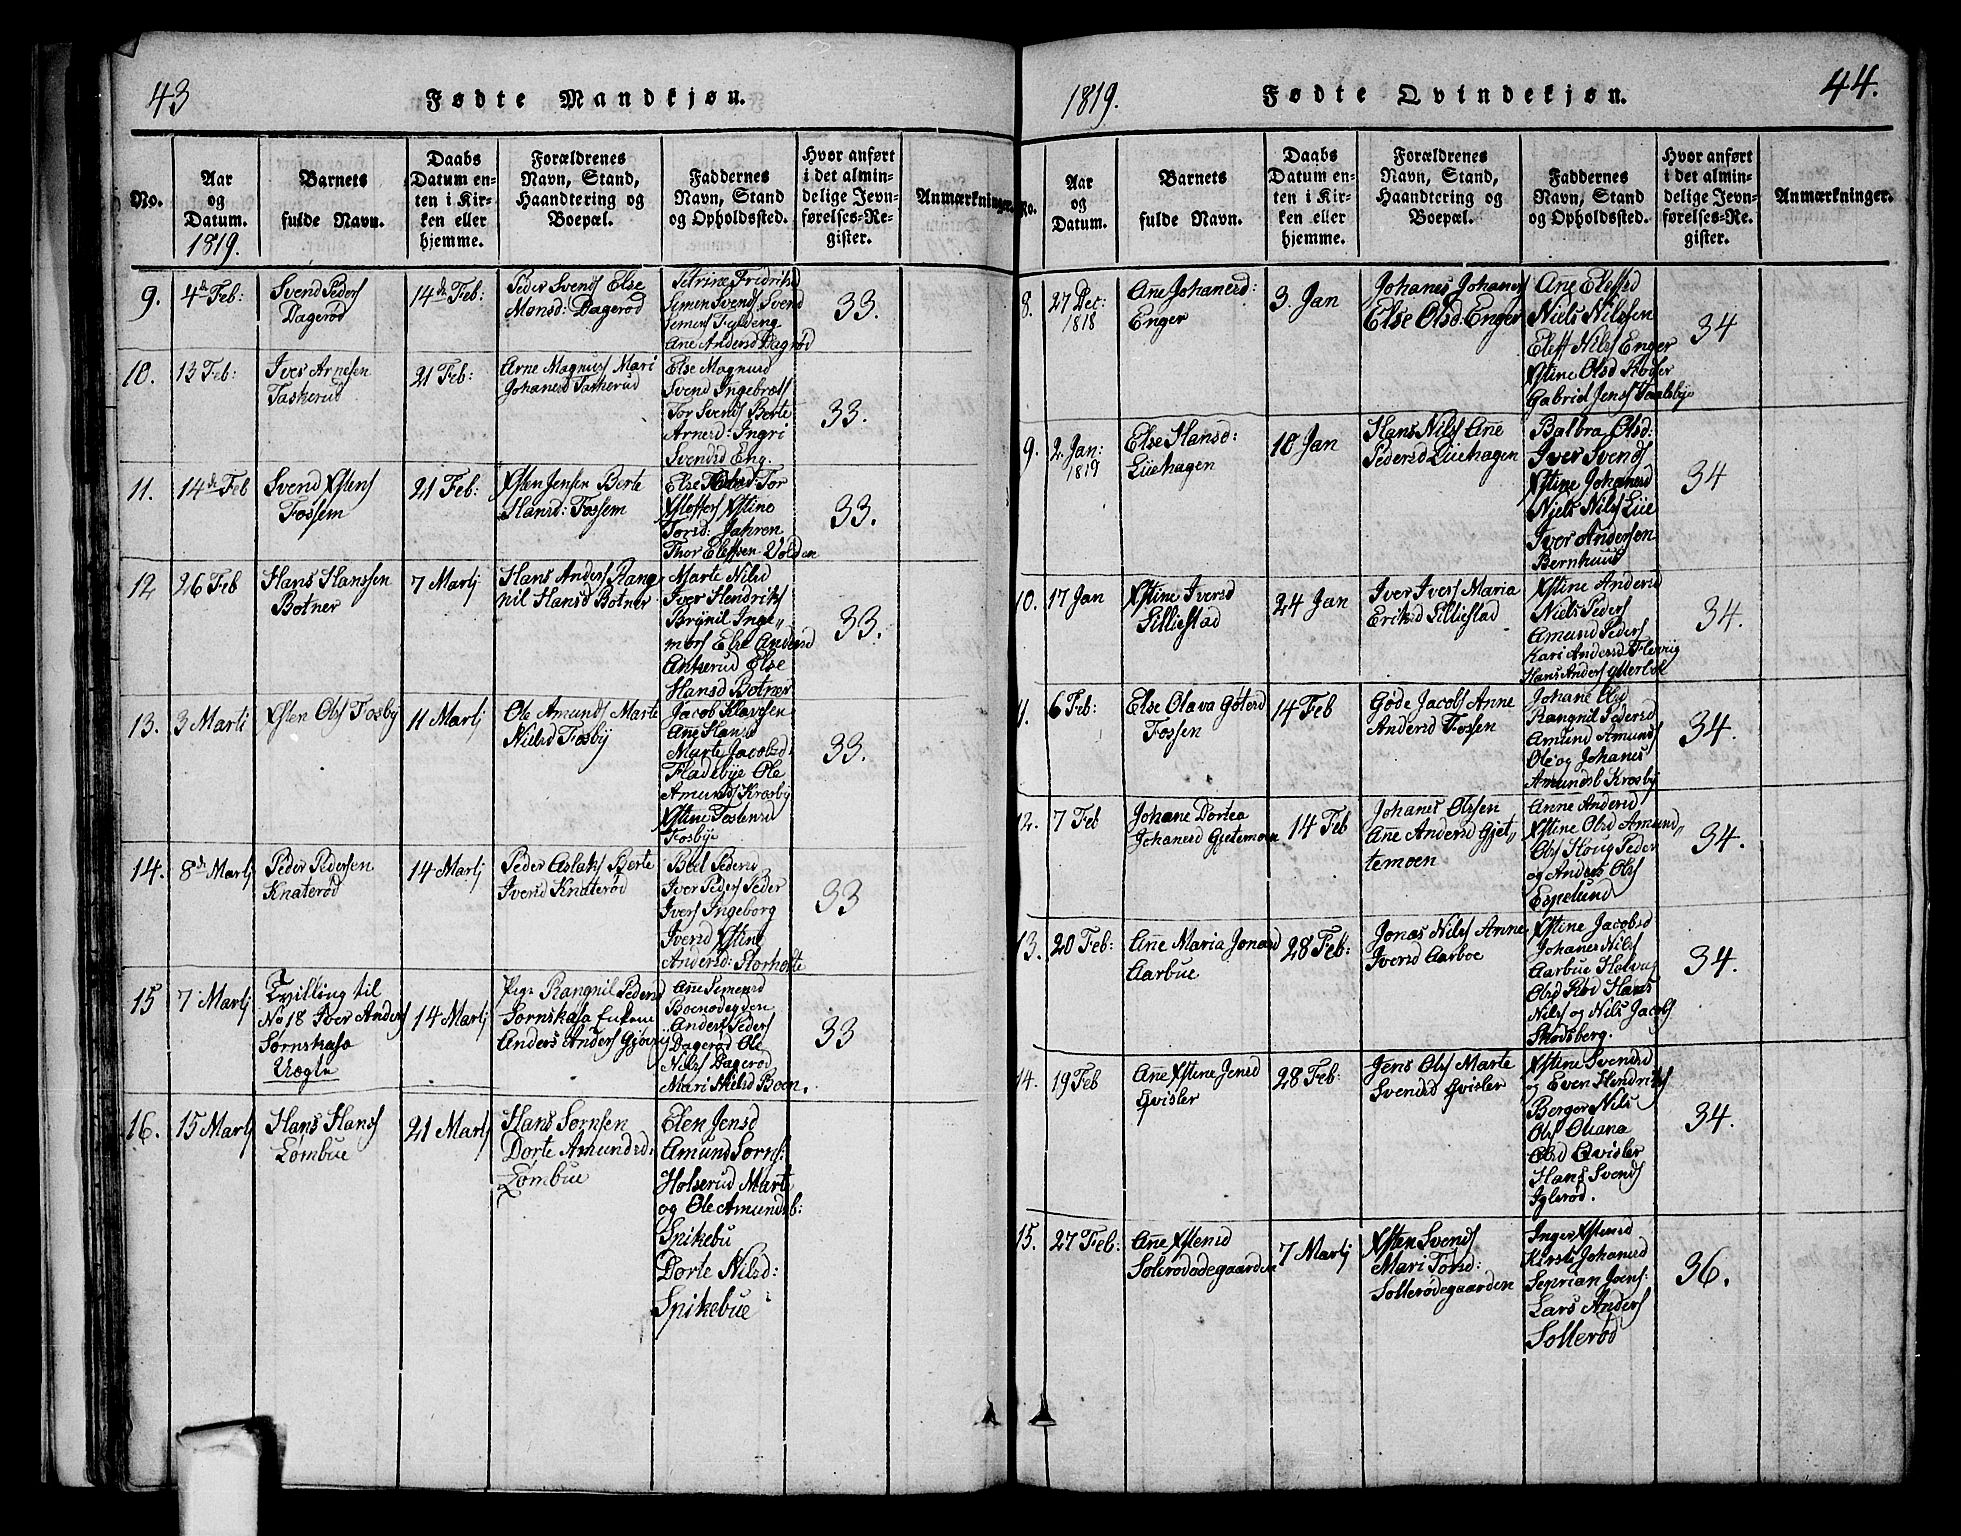 43
Fødte Mandkjøn.
No.
Aar
og
Datum.
1819.
Barnets
fulde Navn.
Daabs
Datum en-
ten i Kir-
ken eller
hjemme.
Forældrenes
Navn, Stand,
Haandtering og
Boepæl.
Faddernes
Navn, Stand
og Opholdssted.
Hvor anført
i det almin-
delige Jevn-
førelses-Re-
gister.
Anmærkninger.
9.
4de Feb:
Svend Peders
Dagerød
14de Feb:
Peder Svends Else
Monsd: Dagerød
Petrine Fredriks
Simen Svends Svend
Simens
Ane Andersd Dagrød
33.
10.
13 Feb:
Iver Arnesen
Taskerud
21 Feb:
Arne Magnuss Mari
Johanesd Taskerud
Else Magnusd
Svend Ingebrets
Tor Svends Berte
Arnesd: Ingri
Svendsd Eng.
33.
11.
14de Feb
Svend Xstens
Fossem
21 Feb:
Xsten Jensen Berte
Hansd: Fossem
Else Tor
Xstoffers Xstine
Torsd: Jahren
Thor Eleffsen Volden
33.
12
26 Feb
Hans Hanssen
Botner
7 Martj
Hans Anders Rang
nil Hansd Botner
Marte Nilsd
Iver Hendriks
Brynil Inge„
mors Else Andersd
Antserud Else
Hansd Botner
33.
13.
3 Marti
Xsten Ols Fosby
11 Martj
Ole Amunds Marte
Nielsd Fosby
Jacob Klavesen
Ane Hansd
Marte Jacobsd:
Fladebye Ole
Amunds Krosby
Xstine Tostensd
Fosbye
33.
14.
8de Martj
Peder Pedersen
Knaterød
14 Martj
Peder Aslaks Berte
Iversd Knaterød
Beel Pedersd
Iver Peders Peder
Ivers Ingeborg
Iversd Xstine
Andersd: Storholte
33
15
7 Martj
Tvilling til
No 18 Iver Anders
Sørnskasa
Uægte
14 Martj
Pige Rangnil Pedersd
Sørnskasa Enkem
Anders Anders Gjøvig
Ane Simensd
Boenødegden
Anders Peders
Dagerød Ole
Nils Dagerød
Mari Nielsd Boen.
33
16.
15 Martj
Hans Hans
Lømbue
21 Martj
Hans Sørnsen
Dorte Amundsd:
Lømbue
Elen Jensd
Amund Sørns:
Holserud Marte
og Ole Amundsb:
Snikebu
Dorte Nilsd:
Snikebue
1819.
Fødte Qvindekjøn.
44.
No.
Aar
og
Datum.
Barnets
fulde Navn.
Daabs
Datum en-
ten i Kir-
ken eller
hjemme.
Forældrenes
Navn, Stand,
Haandtering og
Boepæl.
Faddernes
Navn, Stand
og Opholdssted.
Hvor anført
i det almin-
delige Jevn-
førelses-Re-
gister.
Anmærkninger.
8.
27 Dec:
1818
Ane Johanesd:
Enger
3. Jan
Johanes Johanes
Else Olsd: Enger
Ane Eleffsd
Niels Nilssen
Eleff Nils Enger
Xstine Olsd Koder
Gabriel Jens Haalsbye
34
9.
2 Jan:
1819
Else Hansd:
Liiehagen
10 Jan
Hans Nils Ane
Pedersd Liiehagen
Balbra Olsd:
Iver Svends
Xstine Johanesd
Niels Nils Liie
Iver Andersen
Bernhuus
34
10.
17 Jan
Xstine Iversd
Lilliestad
24 Jan
Iver Ivers Maria
Eriksd Lilliestad
Xstine Andersd
Niels Peders
Amund Peders
Kari Andersd Flesvig
Hans Anders Ytterbøl
34.
11.
6 Feb:
Else Olava Gøtersd
Fossen
14 Feb
Gøde Jacobs Anne
Andersd Fossen
Johane
Rangnil Pedersd
Amund Amunds
Ole og Johanes
Amundsb Krosby
34.
12.
7 Feb
Johane Dortea
Johanesd Gjetemoen
14 Feb
Johanes Olssen
Ane Andersd Gjet„
temoen
Anne Andersd
Xstine Olsd Amund„
Ols Houg Peder
og Anders Ols
Espelund
34.
13.
20 Feb:
Ane Maria Jonasd
Aarbue
28 Feb:
Jonas Nils Anne
Iversd Aarboe
Xstine Jacobsd
Johanes Nils
Aarbue Helvus
Olsd Rød Hans
Nils og Nils Jacobs
Skodsberg.
34.
14.
19 Feb
Ane Xstine Jensd
Qvisler
28 Feb:
Jens Ols Marte
Svendsd Qvisler
Xstine Svendsd
og Even Hendriks
Berger Nils
Ols Oliana
Olsd Qvisler
Hans Svends
Iglerød.
34.
15.
27 Feb:
Ane Xstensd
Solerødødegaarden
7 Martj
Xsten Svends
Mari Torsd:
Sollerødegaarden
Inger Xstensd
Kirsti Johanesd
Seprian Joens:
Lars Anders
Sollerød
36.